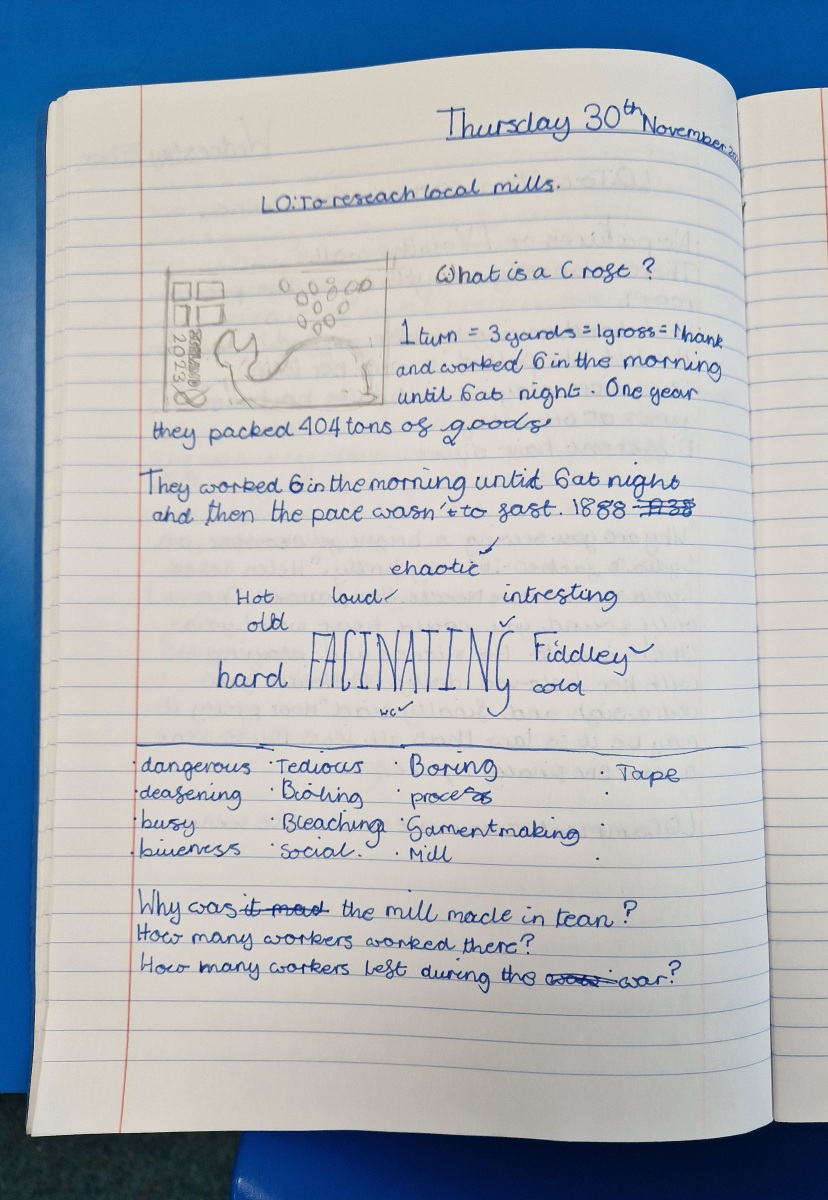 Thursday 30th November
LO: To reseach local mills.
What is a Croft?
2023
1 turn = 3 yards = 1 gross = 1 hank
and worked 6 in the morning
until 6 at night. One year
they packed 404 tons of goods
They worked 6 in the morning until 6 at night
and then the pace wasn't to fast. 1888 1938
chaotic
Hot loud intresting
old
hard FACINATING Fiddley
cold
wc
·dangerous ·Tedious ·Boring ·Tape
·deafening ·Boiling ·process ·
·busy ·Bleaching ·Gamentmaking ·
·biueness ·Social. ·Mill ·
Why was it mad the mill made in tean?
How many workers worked there?
How many workers left during the war?